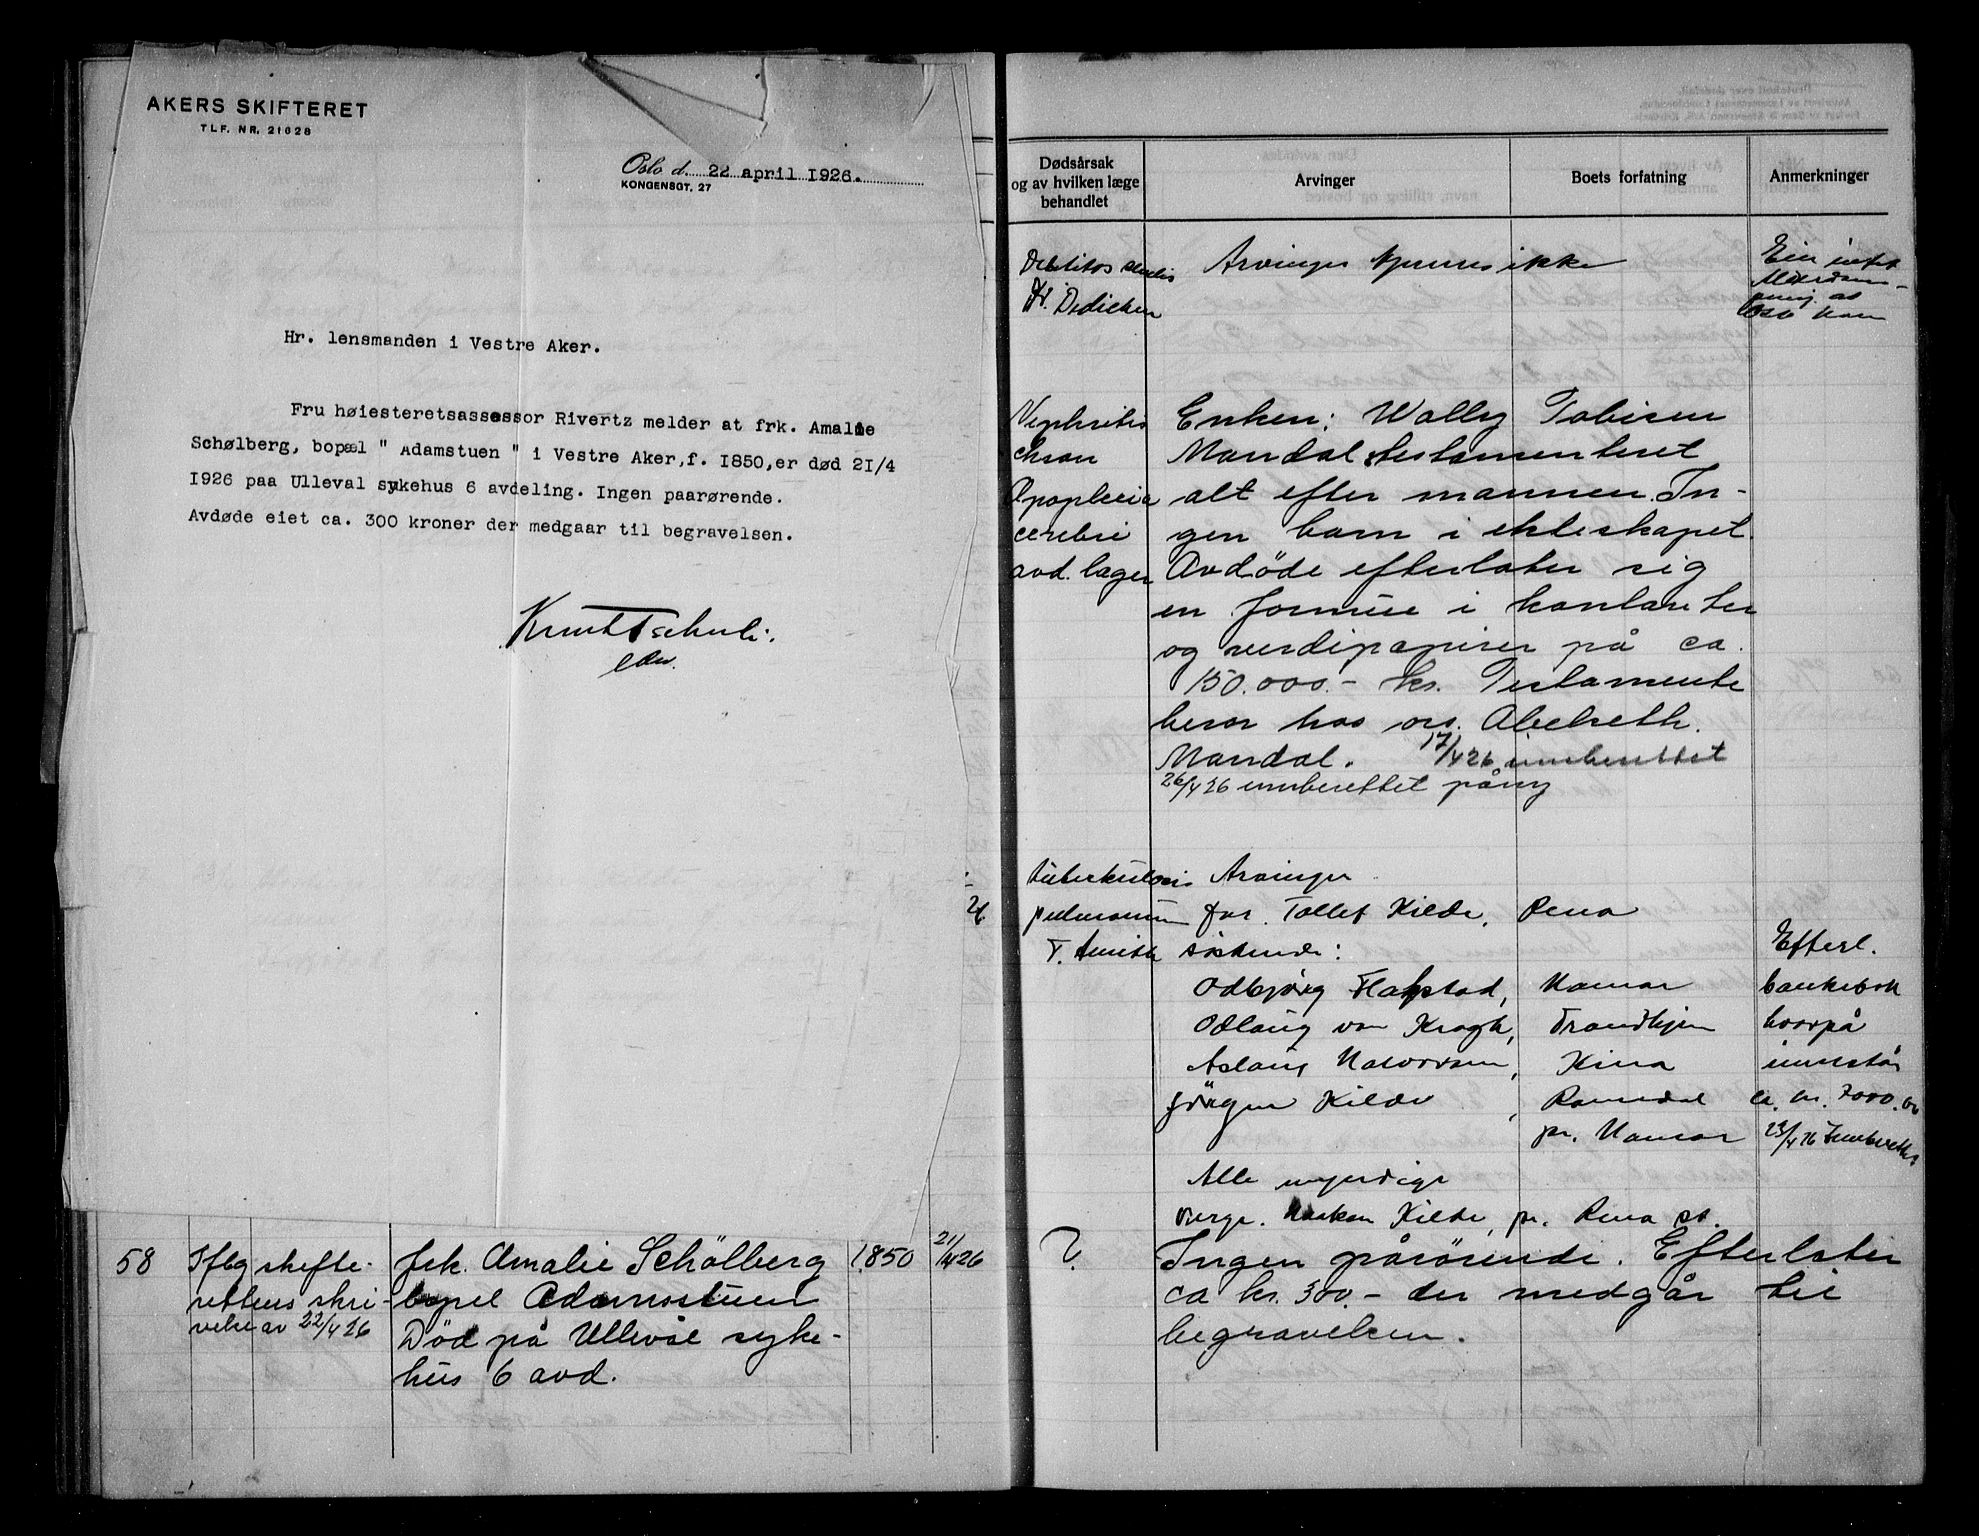 AKERS SKIFTERET
TLF. NR. 21628
Oslo d. 22 april 1926.
KONGENSGT. 27
Hr. lensmanden i Vestre Aker.
Fru høiesteretsassessor Rivertz melder at frk. Amalie
Schølberg, bopæl " Adamstuen " i Vestre Aker, f. 1850, er død 21/4
1926 paa Ulleval sykehus 6 avdeling. Ingen paarørende.
Avdøde eiet ca. 300 kroner der medgaar til begravelsen.
58 Iflg skifte- frk. Amalie Schölberg 1850 21/4 26
rettens skri- bopel Adamstuen
velse av 22/4 26 Död på Ullevål syke-
hus 6 avd.
Dødsårsak
og av hvilken læge
behandlet
Arvinger
Boets forfatning
Anmerkninger
Dr. Dedichen
Arvinger kjennes ikke
Nephritis
chron
Apoplexia
cerebri
avd. læger
Enken: Wally Tobisen
Mandal, testamenteret
alt efter mannen. In-
gen barn i ekteskapet.
Avdöde efterlater sig
en formue i kontanter
og verdipapirer på ca.
150.000.- kr. Testamente
beror hos ors. Abelseth.
Mandal. 17/4 26 innberettet
26/4 26 innberettet påny
26
tuberkulosis
pulmonum
Arvinger
far. Tollef Kilde, Rena
söskende:
Odbjörg Flakstad, Hamar
Odlaug von Krogh, Trondhjem
Aslaug Halvorsen, Kina
Jörgen Kilde, Romedal
pr. Hamar
Alle myndige
Verge. Haakon Kilde, pr. Rena st.
Efterl.
bankebok
hvorpå
innestår
ca. kr. 7000.00
23/4 26 Innberettet
? Ingen pårörende. Efterlater
ca kr. 300.- der medgår til
begravelsen.